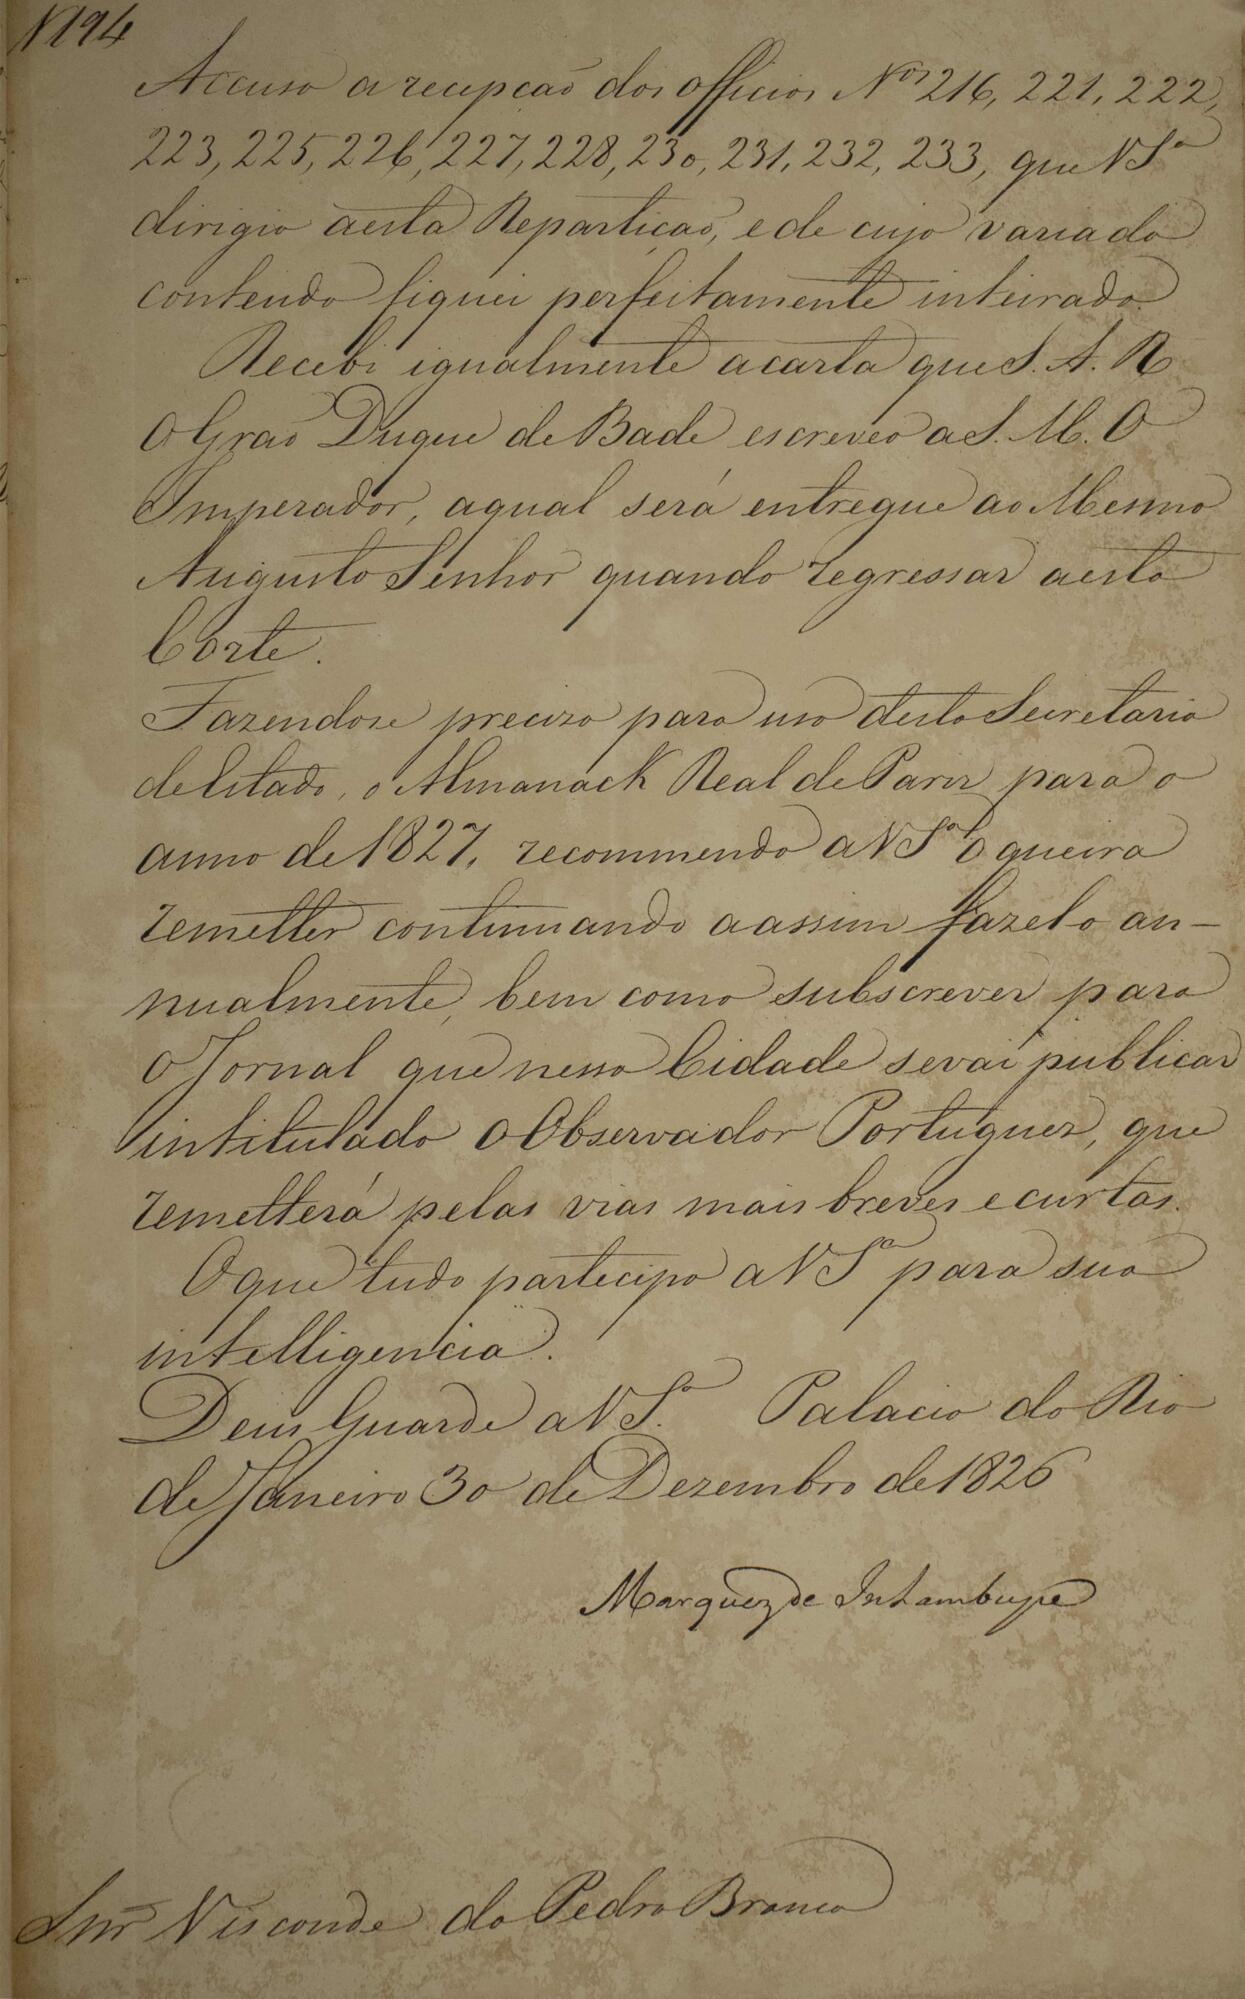 N 194
Accuso a recepcaõ dos officios Nos 216, 221, 222,
223, 225, 226, 227, 228, 230, 231, 232, 233, que VSa
dirigio a esta Repartiçaõ, e de cujo variado
contendo fiquei perfeitamente inteirado.
Recebi igualmente a carta que S. A. R.
O Graõ Duque de Bade escreveo a S. M. O
Imperador, a qual será entregue ao Mesmo
Augusto Senhor quando regressar a esta
Corte.
Fazendose precizo para uso desta Secretaria
de Estado, o Almanack Real de Pariz para o
anno de 1827, recommendo a VSa o queira
remetter continuando a assim fazelo an-
nualmente, bem como subscrever para
O Jornal que nessa Cidade se vai publicar
intitulado O Observador Portuguez, que
remetterá pelas vias mais breves e curtas.
O que tudo participo a VSa para sua
intelligencia.
Deus Guarde a VSa. Palacio do Rio
de Janeiro 30 de Dezembro de 1826
Marquez de Inhambupe
Snr Visconde da Pedra Branca